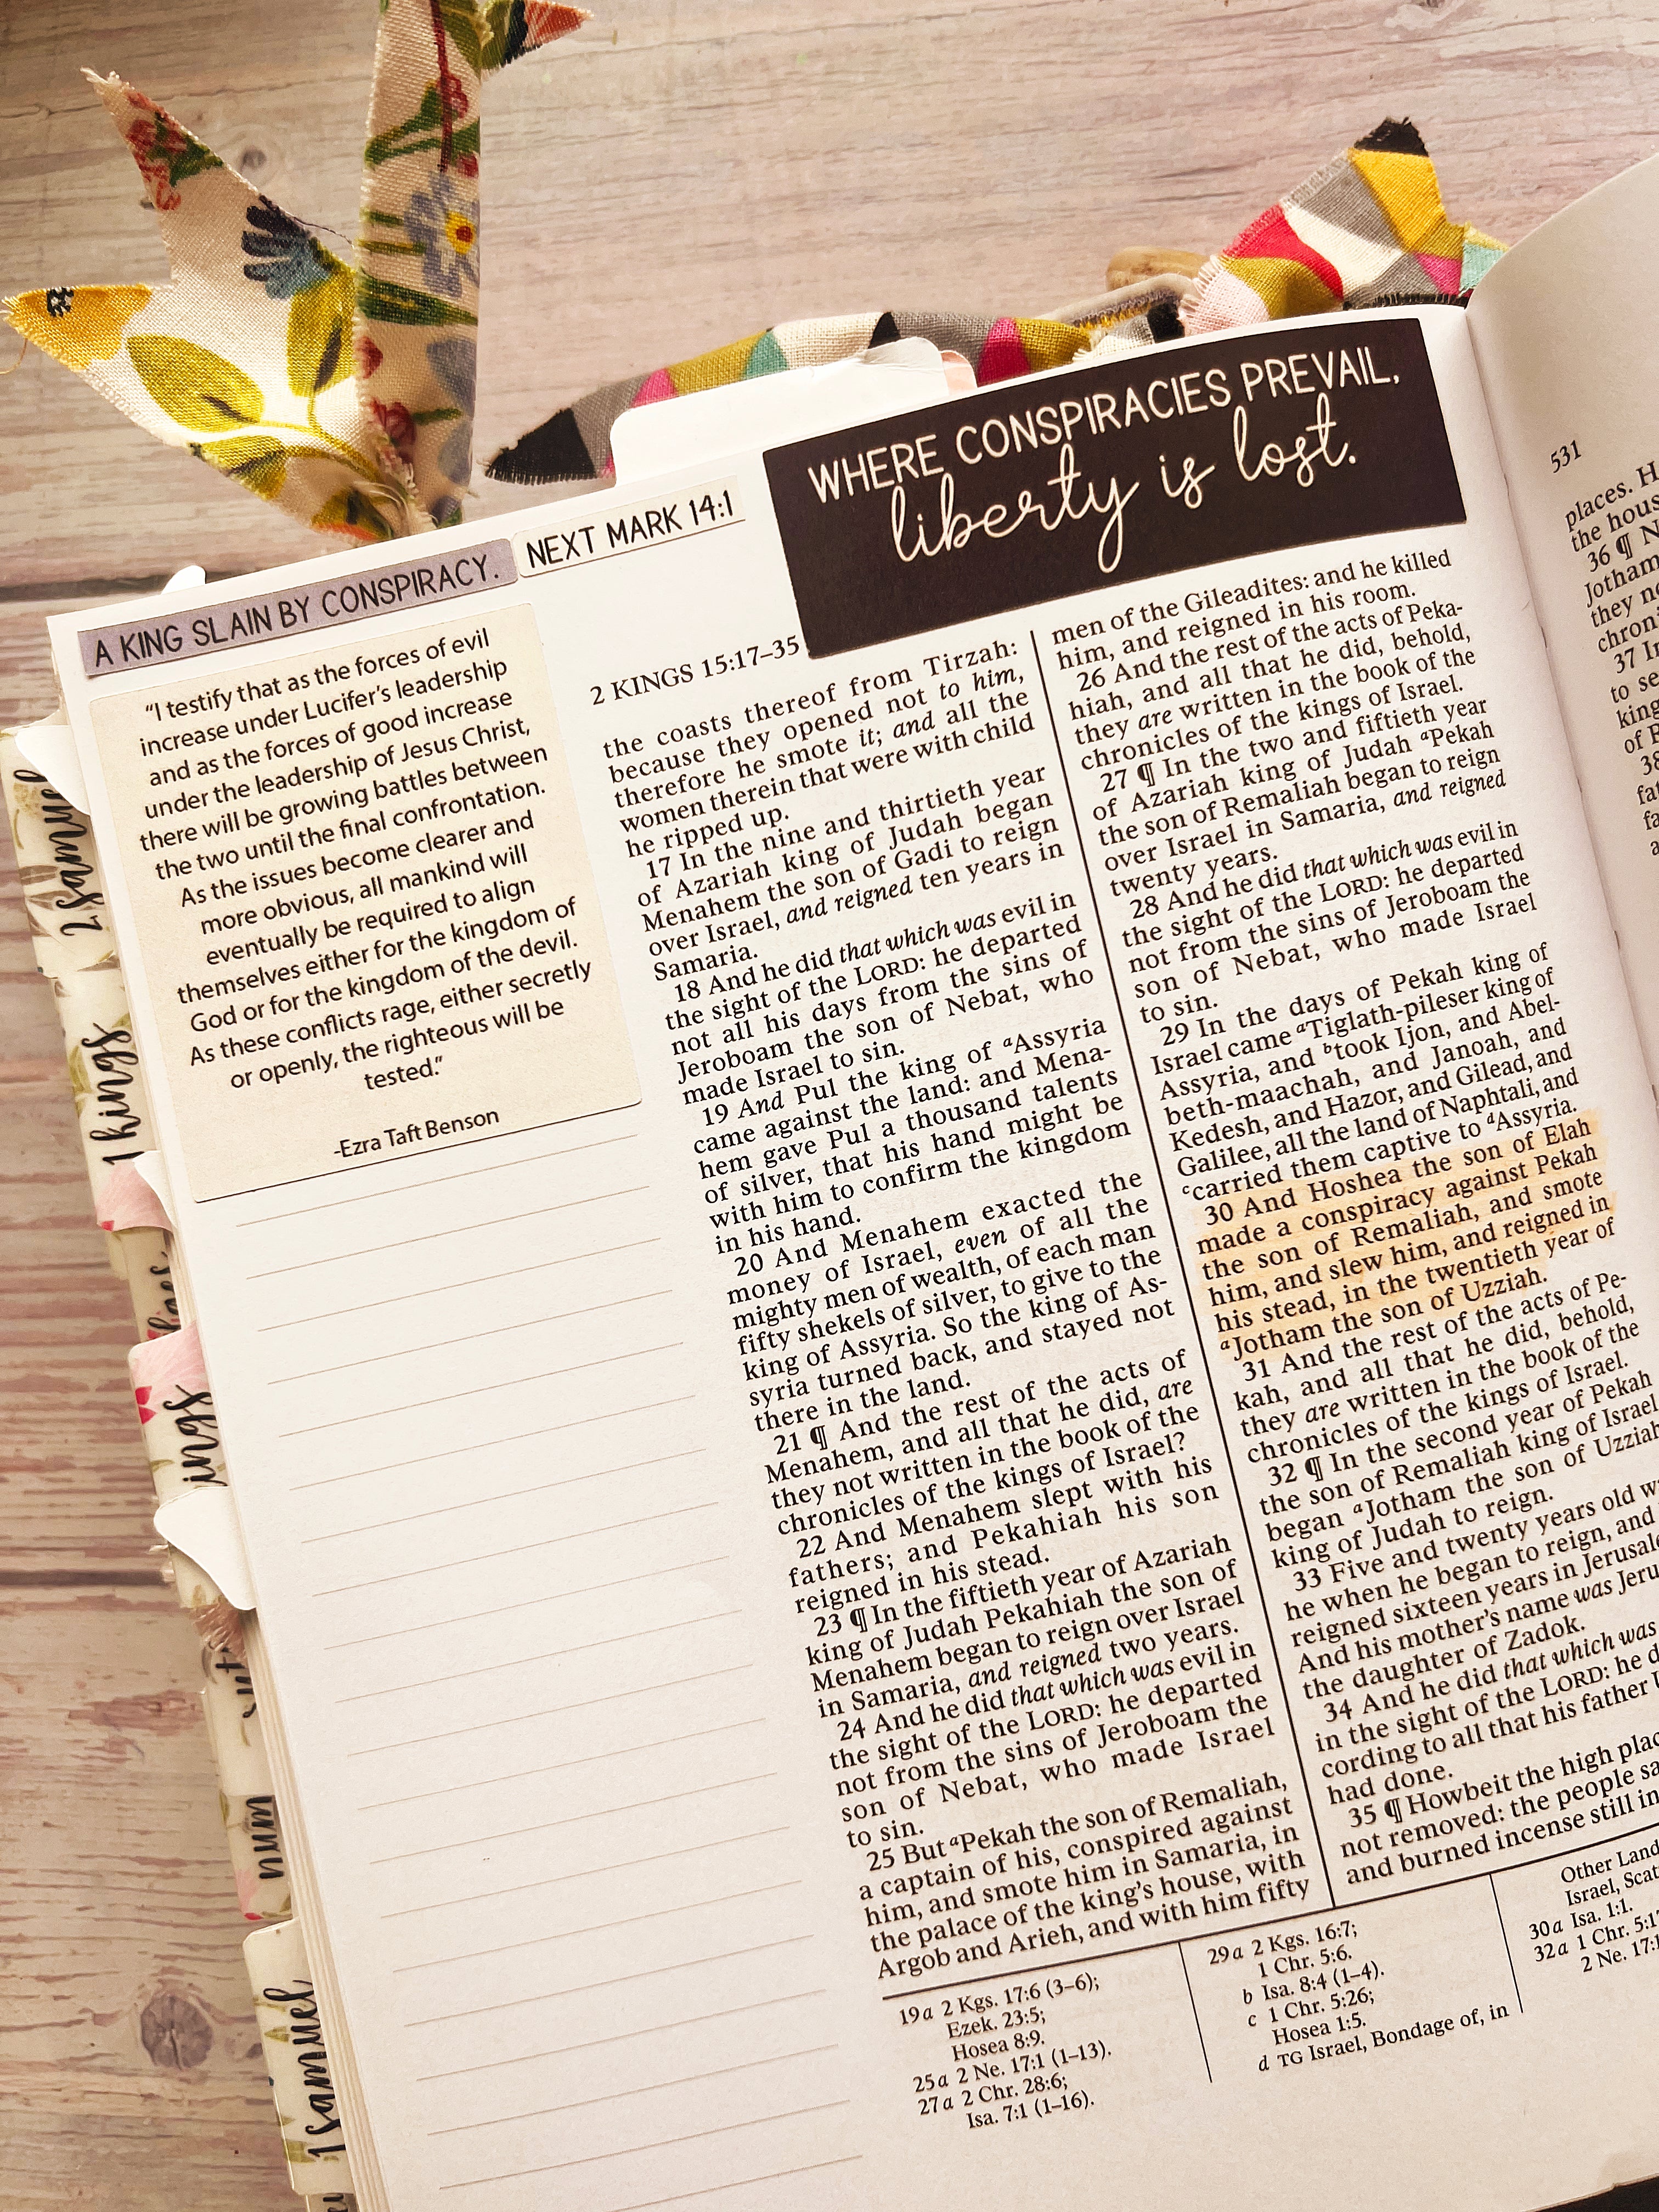 WHERE CONSPIRACIES PREVAIL,
liberty is lost.
A KING SLAIN BY CONSPIRACY.
NEXT MARK 14:1
"I testify that as the forces of evil
increase under Lucifer's leadership
and as the forces of good increase
under the leadership of Jesus Christ,
there will be growing battles between
the two until the final confrontation.
As the issues become clearer and
more obvious, all mankind will
eventually be required to align
themselves either for the kingdom of
God or for the kingdom of the devil.
As these conflicts rage, either secretly
or openly, the righteous will be
tested."
-Ezra Taft Benson
2 Samuel
1 kings
ings
num
1 Samuel
2 KINGS 15:17–35
the coasts thereof from Tirzah:
because they opened not to him,
therefore he smote it; and all the
women therein that were with child
he ripped up.
17 In the nine and thirtieth year
of Azariah king of Judah began
Menahem the son of Gadi to reign
over Israel, and reigned ten years in
Samaria.
18 And he did that which was evil in
the sight of the LORD: he departed
not all his days from the sins of
Jeroboam the son of Nebat, who
made Israel to sin.
19 And Pul the king of aAssyria
came against the land: and Mena-
hem gave Pul a thousand talents
of silver, that his hand might be
with him to confirm the kingdom
in his hand.
20 And Menahem exacted the
money of Israel, even of all the
mighty men of wealth, of each man
fifty shekels of silver, to give to the
king of Assyria. So the king of As-
syria turned back, and stayed not
there in the land.
21 ¶ And the rest of the acts of
Menahem, and all that he did, are
they not written in the book of the
chronicles of the kings of Israel?
22 And Menahem slept with his
fathers; and Pekahiah his son
reigned in his stead.
23 ¶ In the fiftieth year of Azariah
king of Judah Pekahiah the son of
Menahem began to reign over Israel
in Samaria, and reigned two years.
24 And he did that which was evil in
the sight of the LORD: he departed
not from the sins of Jeroboam the
son of Nebat, who made Israel
to sin.
25 But aPekah the son of Remaliah,
a captain of his, conspired against
him, and smote him in Samaria, in
the palace of the king's house, with
Argob and Arieh, and with him fifty
men of the Gileadites: and he killed
him, and reigned in his room.
26 And the rest of the acts of Peka-
hiah, and all that he did, behold,
they are written in the book of the
chronicles of the kings of Israel.
27 ¶ In the two and fiftieth year
of Azariah king of Judah aPekah
the son of Remaliah began to reign
over Israel in Samaria, and reigned
twenty years.
28 And he did that which was evil in
the sight of the LORD: he departed
not from the sins of Jeroboam the
son of Nebat, who made Israel
to sin.
29 In the days of Pekah king of
Israel came aTiglath-pileser king of
Assyria, and btook Ijon, and Abel-
beth-maachah, and Janoah, and
Kedesh, and Hazor, and Gilead, and
Galilee, all the land of Naphtali, and
ccarried them captive to dAssyria.
30 And Hoshea the son of Elah
made a conspiracy against Pekah
the son of Remaliah, and smote
him, and slew him, and reigned in
his stead, in the twentieth year of
aJotham the son of Uzziah.
31 And the rest of the acts of Pe-
kah, and all that he did, behold,
they are written in the book of the
chronicles of the kings of Israel.
32 ¶ In the second year of Pekah
the son of Remaliah king of Israel
began aJotham the son of Uzziah
king of Judah to reign.
33 Five and twenty years old w
he when he began to reign, and
reigned sixteen years in Jerusale
And his mother's name was Jeru
the daughter of Zadok.
34 And he did that which was
in the sight of the LORD: he d
cording to all that his father U
had done.
35 ¶ Howbeit the high plac
not removed: the people sa
and burned incense still in
19a 2 Kgs. 17:6 (3–6);
Ezek. 23:5;
Hosea 8:9.
25a 2 Ne. 17:1 (1–13).
27a 2 Chr. 28:6;
Isa. 7:1 (1–16).
29a 2 Kgs. 16:7;
1 Chr. 5:6.
b Isa. 8:4 (1–4).
c 1 Chr. 5:26;
Hosea 1:5.
d TG Israel, Bondage of, in
Other Land
Israel, Scat
30a Isa. 1:1.
32a 1 Chr. 5:1
2 Ne. 17:1
531
places. H
the hous
36 ¶ N
Jotham
they n
chron
37 I
to se
king
of
38
fa
fa
a